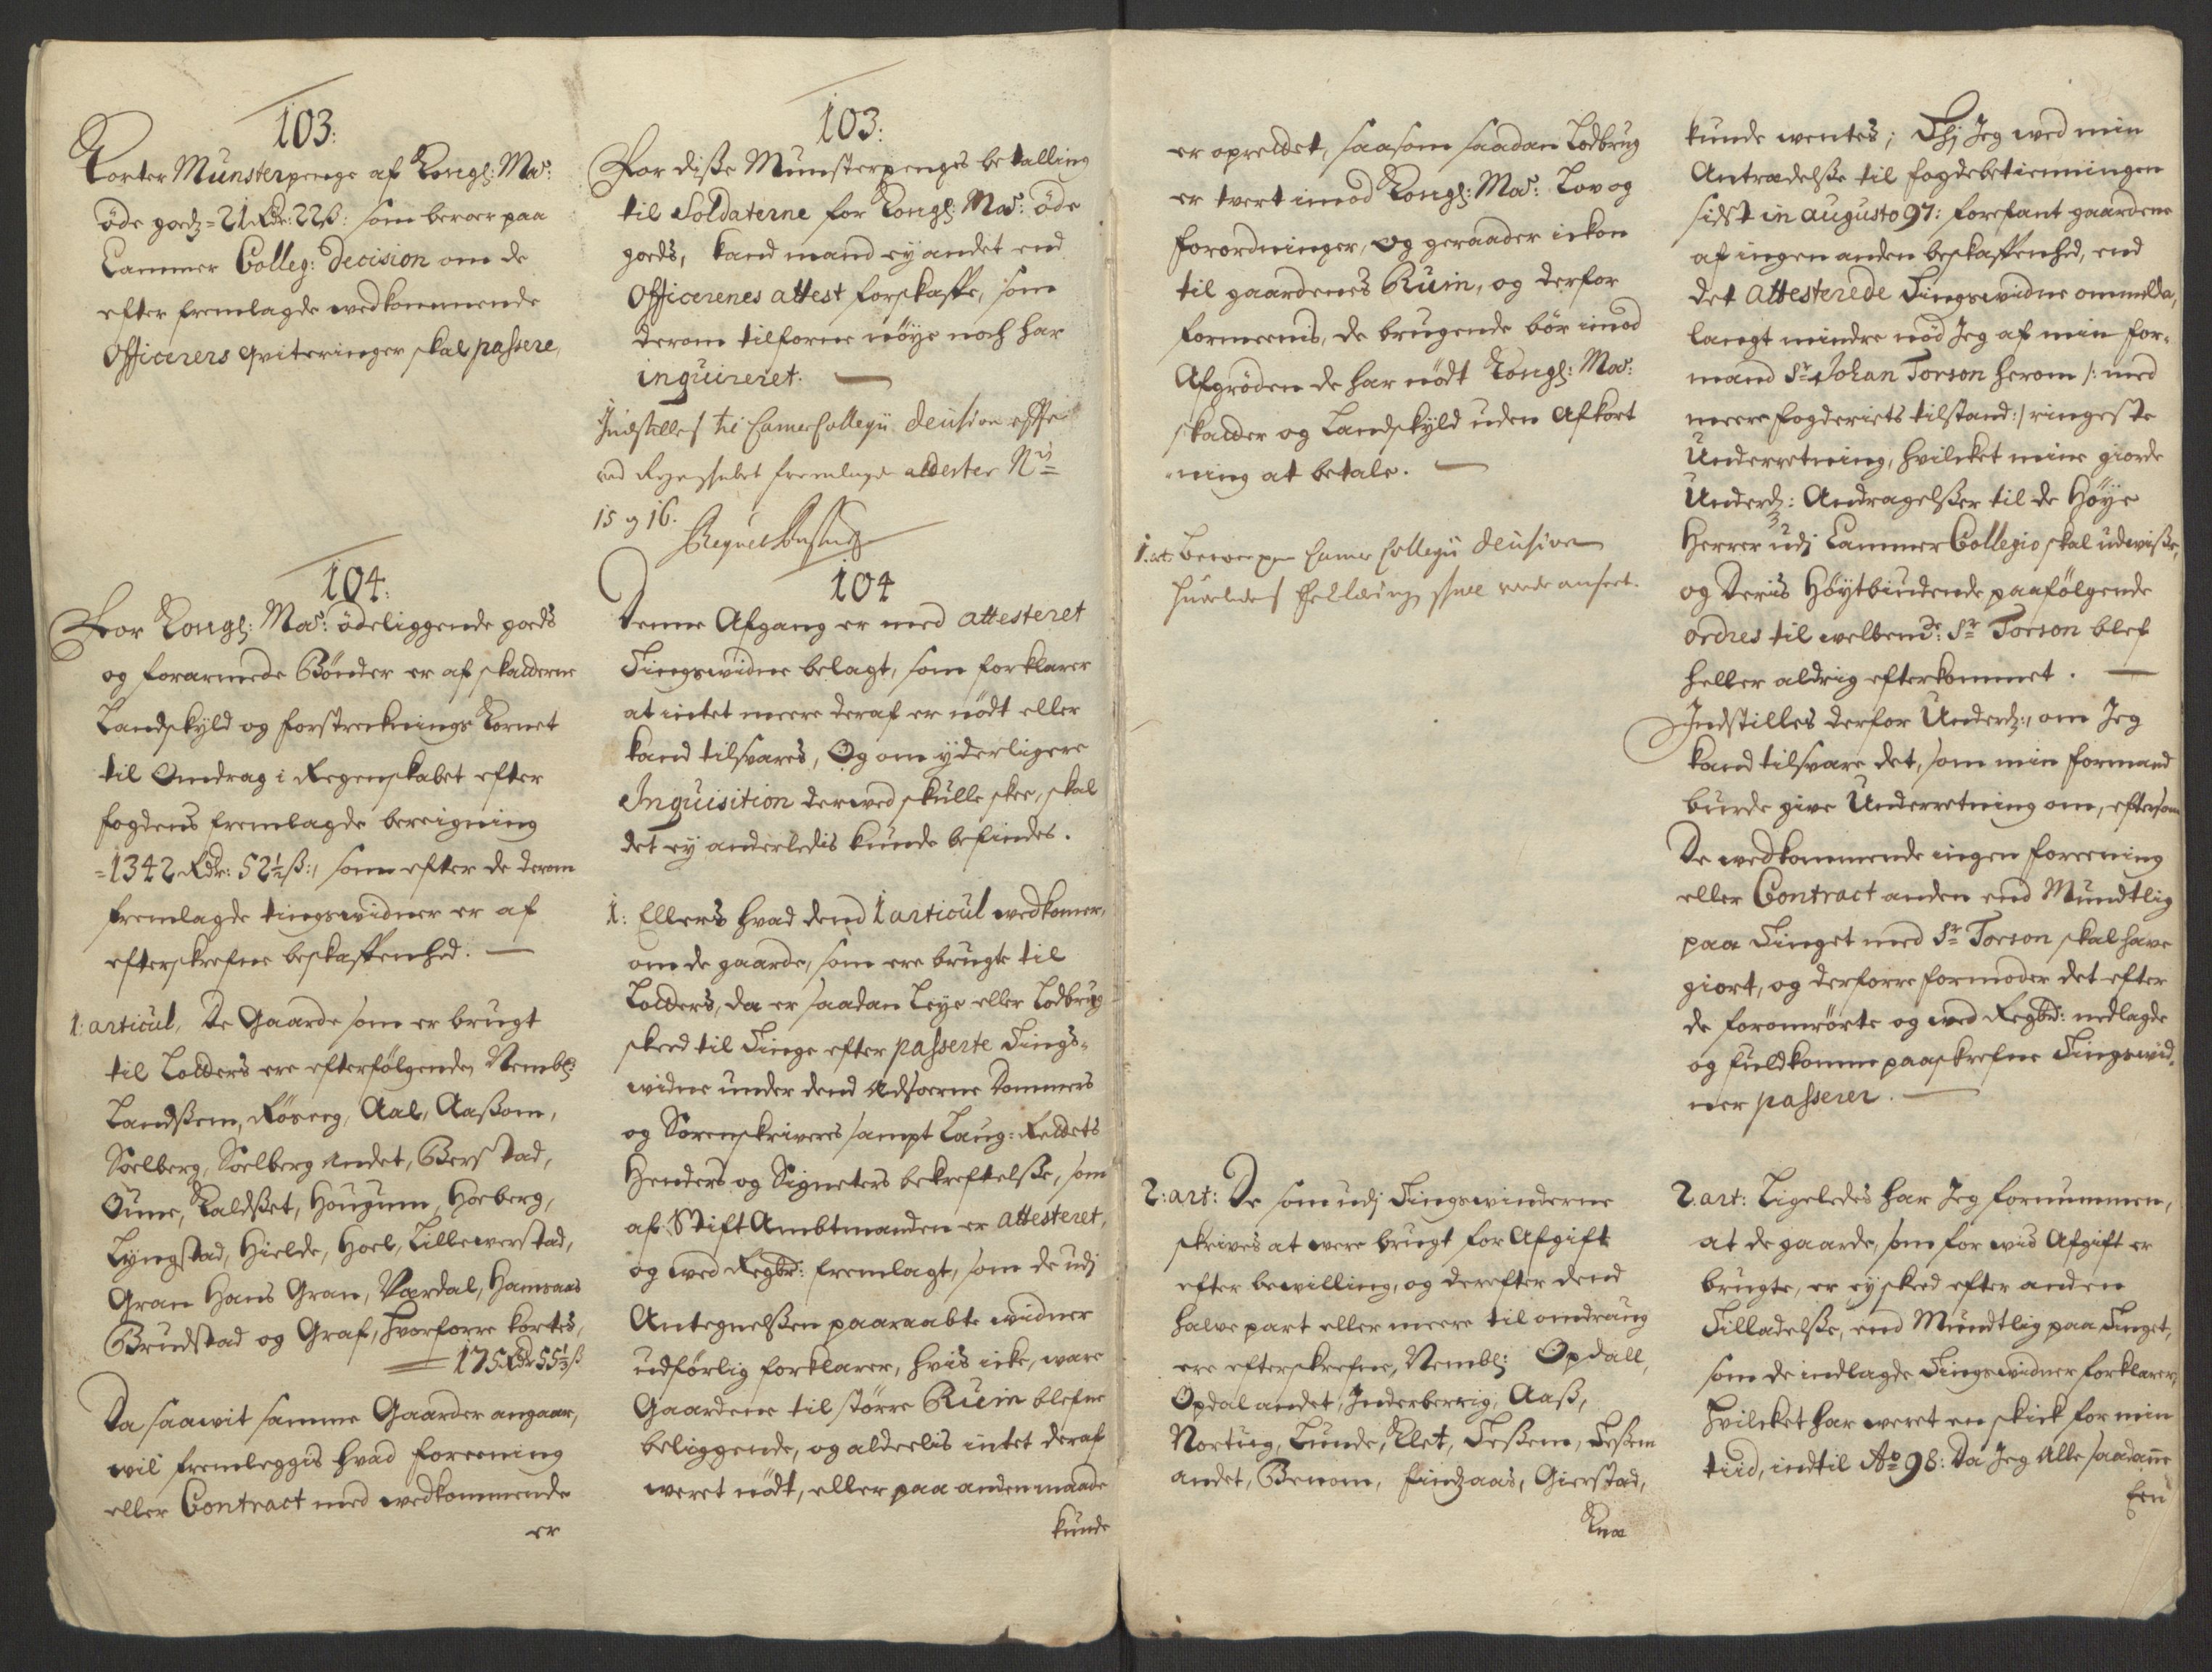 103:
Korter Munsterpenge af Kongl: Maÿ:
öde goedz = 21 Rdr: 22 ß: som beroer paa
Cammer Colleg: Decision om de
efter fremlagde wedkommende
Officerers qviteringer skal passere,
104:
For Kongl: Maÿ: ödeliggende goeds
og forarmede Bönder er af skatterne
Landskyld og forstreknings Kornet
til Omdrag i Regenskabet efter
fogdens fremlagde bereigning
=1342 Rdr: 52½ ß:, som efter de derom
fremlagde tingswidner er af
efterskrefne beskaffenhed. —
1: articul, De Gaarde som er brugt
til Lodders ere efterfölgende, Nembl:
Landßem, Röseeg, Aal, Aaßom,
Soelberg, Soelberg andet, Berstad,
Oune, Kaldßet, Hougum, Hoeberg,
Lyngstad, Hielde, Hoel, Lillewerstad,
Gran Hans Gran, Værdal, Hamsaas
Brudstad og Graf, Hvorforre kortes,
= 175 Rdr 55½ ß
Da saawit samme Gaarder angaar,
wil fremleggis hvad foreening
eller Contract med wedkommende
er
103:
For diße Munsterpenges betalling
til Soldaterne for Kongl: Maÿ: öde
goeds, kand mand ey andet end
Officerenes attest forskaffe, som
derom tilforne nöye noch har
inquireret. —
Indstilles til Camer Collegii decision efter
ved Regenskabet fremlagde attester No
15 og 16.
104
Denne Afgang er med attesteret
Tingswidne belagt, som forklarer
at intet meere deraf er nödt eller
kand tilsvares, Og om ÿderligere
Inquisition derwed skulle skee, skal
det ey anderledis kunde befindes.
1: Ellers hvad dend 1 articul wedkomer,
om de gaarde, som ere brugte til
Lodders, da er saadan Leye eller Lodbrug
skeed til Tinge efter passerte Tings-
widne under dend Adsoerne Dommers
og Sorenskrivers sampt Laug-Rettets
Henders og Signeters bekreftelße, som
af Stift Ambtmanden er attesteret,
og wed Regbd: fremlagt, som de udj
Antegnelßen paaraabte widner
udförlig forklarer, hvis icke, ware
Gaardene til större Ruin blefne
beliggende, og aldeelis intet deraf
weret nödt, eller paa anden maade
kunde
er oprettet, saasom saadan Lodbrug
er twert imod Kongl: Maÿ: Lov og
forordninger, og geraader ickon
til gaardenes Ruin, og derfor
formeenis, de brugende bör imod
Afgröden de har nödt Kongl: Maÿ:
skatter og Landskyld uden Afkort
ning at betale. —
1. art: beroer paa Camer Collegii decision
huorledes
2: art: De som udj Tingswinderne
skrives at were brugt for Afgift
efter bewilling, og derefter dend
halve part eller meere til omdraug
ere efterskrefne, Nembl: Opdall,
Opdal andet, Inderberrig, Aaß,
Nortug, Lunde, Klet, Teßem, Teßem
andet, Benom, Findzaas, Gierstad,
Knæ
kunde wentes; Thj Jeg wed min
Antrædelße til fogdebetienningen
sidst in augusto 97: forefant gaardene
af ingen anden beskaffenhed, end
det attesterede Tingswidne ommelder,
langt mindre nöd Jeg af min for-
mand Sr Johan Torson herom /: med
meere fogderiets tilstand:/ ringeste
Underretning, hvilcket mine giorde
Underd: Andragelßer til de Höye
Herrer udj Cammer Collegio skal udwiße,
og Deris Höytbiudende paafölgende
ordres til welbemd: Sr Torson blef
heller aldrig efterkommet. —
Indstilles derfor Underd:, om Jeg
kand tilsvare det, som min formand
burde give Underretning om, eftersom
De wedkommende ingen foreening
eller Contract anden end Mundtlig
paa Tinget med Sr Torson skal have
giort, og derforre formoder det efter
de foromrörte og wed Regbd: nedlagde
og fuldkomne paaskrefne Tingswid-
ner passerer. —
2. art: Ligeledes har Jeg fornummen,
at de gaarde, som for wis Afgift er
brugte, er ey skeed efter anden
Tilladelße, end Mundtlig paa Tinget,
som de indlagde Tingswidner forklarer,
Hvilcket har weret en skick for min
tiid, indtil Ao 98: Da Jeg Alle saadane
Een